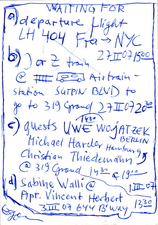 WAITING FOR
a) departure flight
LH 404 Fra → NYC
27 III 07 1500
b) J or Z train
@ Airtrain-
station SUTPIN BLVD to
go to 319 Grand 27 III 07 20
c) guests UWE WOJATZEK
BERLIN
Michael Harder Hamburg
Christian Thiedemann
@ 319 Grand 14 30 & 19 00
d) Sabine Walli @
Apr. Vincent Herbert
3 III 07 644 B'way 13 30